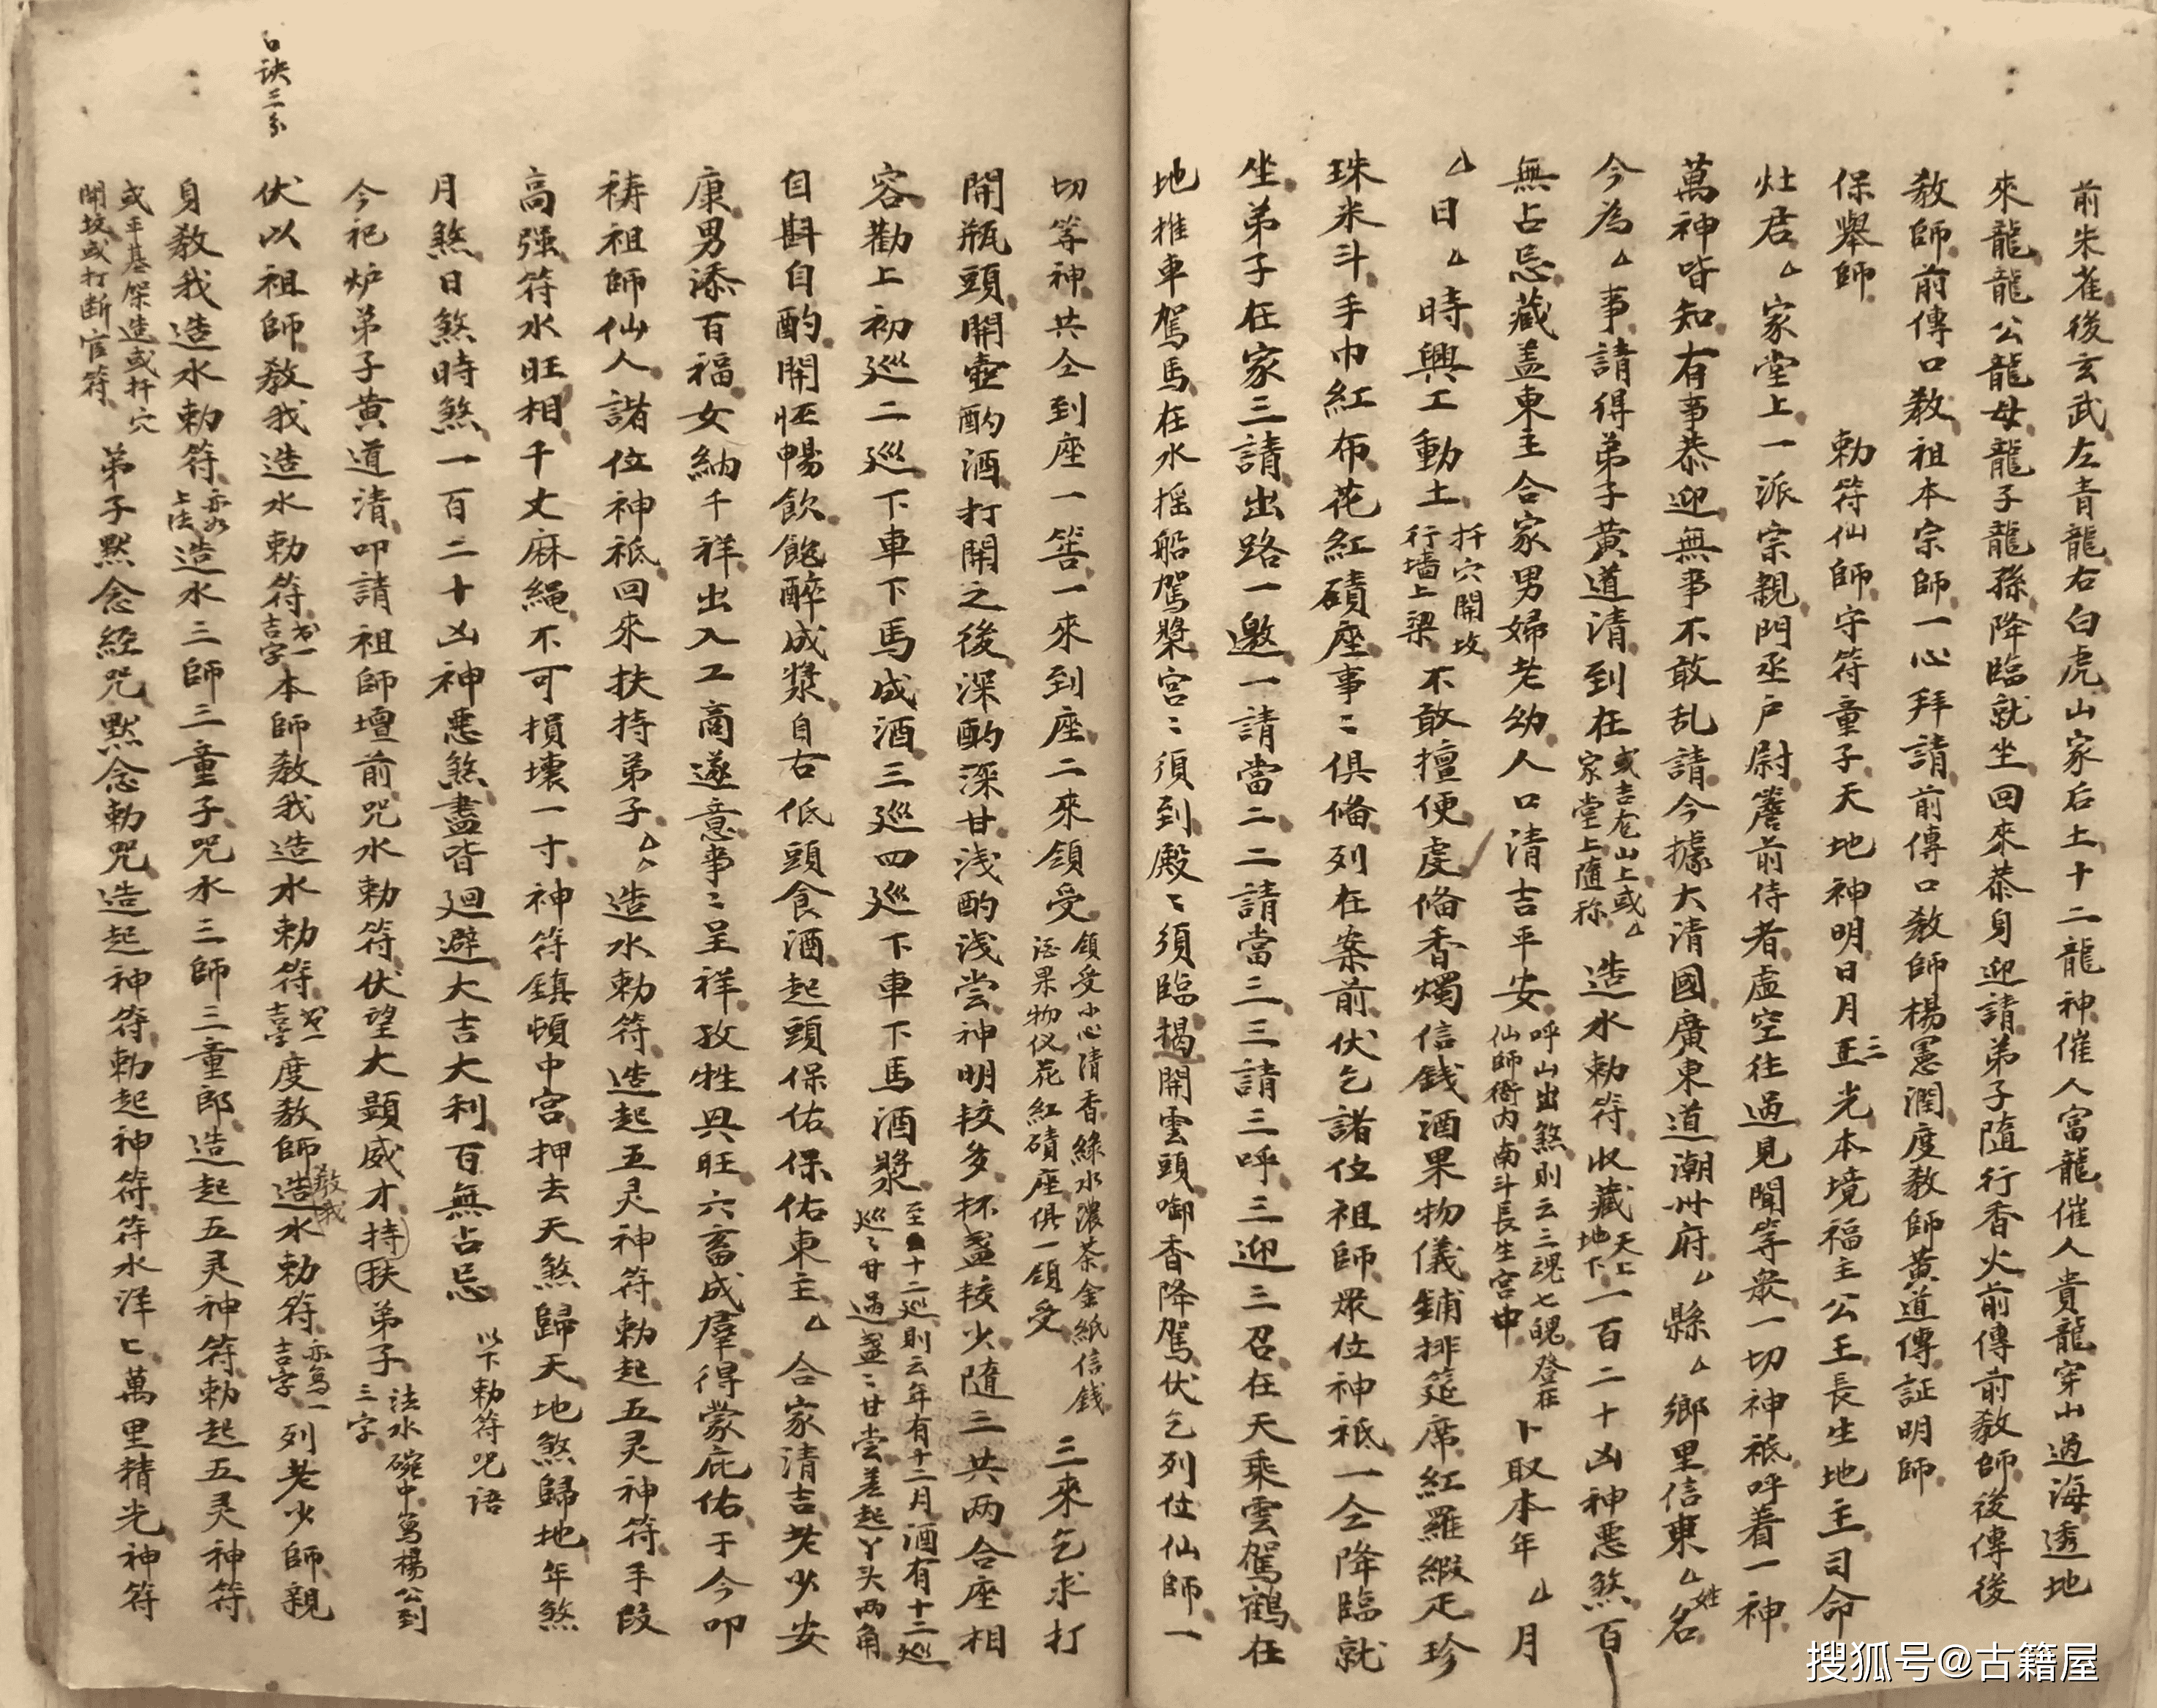 前朱雀後玄武左青龍右白虎山家后土十二龍神催人富龍催人貴龍穿山過海透地
來龍龍公龍母龍子龍孫降臨就坐回來恭身迎請弟子隨行香火前傳前教師後傳後
教師前傳口教祖本宗師一心拜請前傳口教師楊憲潤度教師黃道傳証明師
保舉師 勅符仙師守符童子天地神明日月三光本境福主公王長生地主司命
灶君△家堂上一派宗親門丞戶尉簷前侍者虛空往過見聞等衆一切神祗呼着一神
萬神皆知有事恭迎無事不敢乱請今據大清國廣東道潮州府△縣△鄉里信東△姓名
今為△事請得弟子黃道清到在或吉宅山上或△家堂上隨称造水勅符收藏天上地下一百二十凶神惡煞百
無占忌藏盖東主合家男婦老幼人口清吉平安呼山出煞則云三魂七魄登在仙師衙内南斗長生宮中卜取本年△月
△日△時興工動土扦穴開坟行墙上梁不敢擅便虔俻香燭信銭酒果物儀鋪排筵席紅羅緞疋珍
珠米斗手巾紅布花紅磧座事〻俱俻列在案前伏乞諸位祖師衆位神祗一仝降臨就
坐弟子在家三請出路一邀一請當二二請當三三請三呼三迎三召在天乘雲駕鶴在
地推車駕馬在水摇船駕槳宮〻須到殿〻須臨揭開雲頭啣香降駕伏乞列位仙師一
切等神共仝到座一筶一來到座二來領受領受小心清香綠水濃茶金紙信銭酒果物仪花紅磧座俱一領受三來乞求打
開瓶頭開壺酌酒打開之後深酌深甘浅酌浅尝神明較多杯盞較少隨三共两合座相
容勸上初巡二巡下車下馬成酒三巡四巡下車下馬酒漿至十二巡則云年有十二月酒有十二巡巡〻甘過盞〻甘尝差起丫头两角
自斟自酌開怀暢飲飽醉成漿自右低頭食酒起頭保佑保佑東主△合家清吉老少安
康男添百福女納千祥出入工商遂意事〻呈祥孜牲興旺六畜成羣得蒙庇佑于今叩
祷祖師仙人諸位神祗回來扶持弟子△△造水勅符造起五灵神符勅起五灵神符手段
高强符水旺相千丈麻繩不可損壞一寸神符鎮頓中宮押去天煞歸天地煞歸地年煞
月煞日煞時煞一百二十凶神惡煞盡皆廻避大吉大利百無占忌 以下勅符咒语
今祀炉弟子黃道清叩請祖師壇前咒水勅符伏望大顕威才持扶弟子法水碗中寫楊公到三字
口诀三条
伏以祖師教我造水勅符書一吉字本師教我造水勅符書一吉字度教師教我造水勅符亦寫一吉字列老少師親
身教我造水勅符亦如上法造水三師三童子咒水三師三童郎造起五灵神符勅起五灵神符
或平基架造或扦穴開坟或打断官符弟子黙念經咒黙念勅咒造起神符勅起神符符水洋〻萬里精光神符
搜狐号@古籍屋